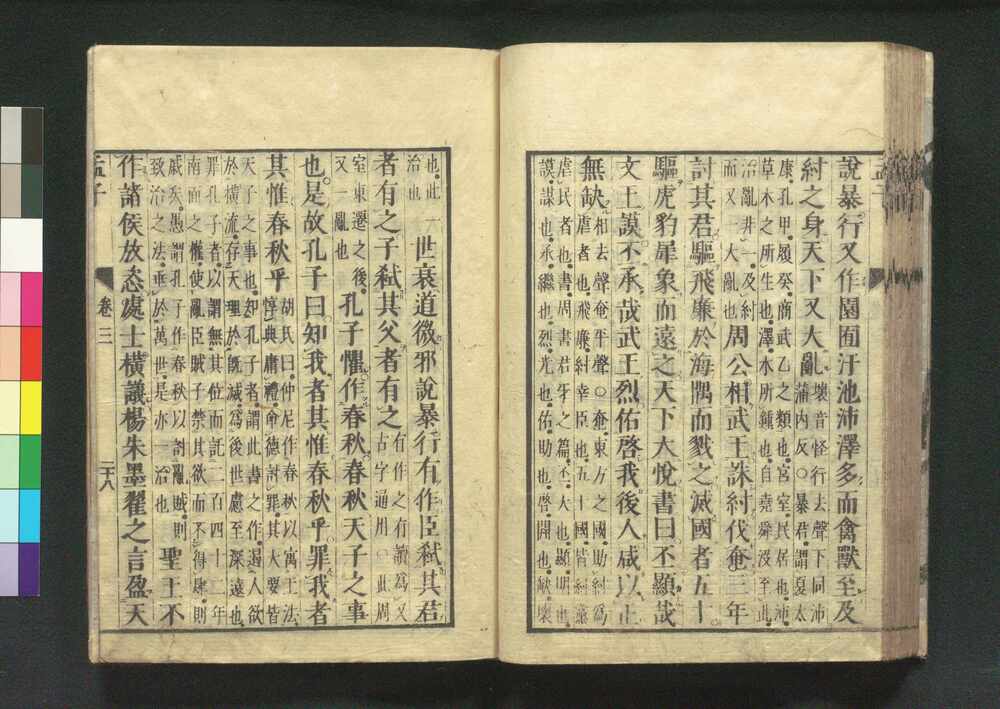 說暴行又作園囿汙池沛澤多而禽獸至及
紂之身天下又大亂壞音怪行去聲下同沛
蒲內反○暴君謂夏太
康孔甲履癸商武乙之類也宮室民居也沛
草木之所生也澤水所鍾也自堯舜沒至此
治亂非一及紂
而又一大亂也周公相武王誅紂伐奄三年
討其君驅飛廉於海隅而戮之滅國者五十
驅虎豹犀象而遠之天下大悅書曰丕顯哉
文王謨丕承哉武王烈佑啓我後人咸以正
無缺相去聲奄平聲○奄東方之國助紂爲
虐者也飛廉紂幸臣也五十國皆紂黨
虐民者也書周書君牙之篇丕大也顯明也
謨謀也承繼也烈光也佑助也啓開也缺壞
也此一
治也
世衰道微邪說暴行有作臣弒其君
者有之子弒其父者有之有作之有讀爲又
古字通用○此周
室東遷之後
又一亂也
孔子懼作春秋春秋天子之事
也是故孔子曰知我者其惟春秋乎罪我者
其惟春秋乎胡氏曰仲尼作春秋以寓王法
惇典庸禮命德討罪其大要皆
天子之事也知孔子者謂此書之作遏人欲
於橫流存天理於旣滅爲後世慮至深遠也
罪孔子者以謂無其位而託二百四十二年
南面之權使亂臣賊子禁其欲而不得肆則
戚矣愚謂孔子作春秋以討亂賊則
致治之法垂於萬世是亦一治也
聖王不
作諸侯放恣處士橫議楊朱墨翟之言盈天
孟子
卷三
二十八